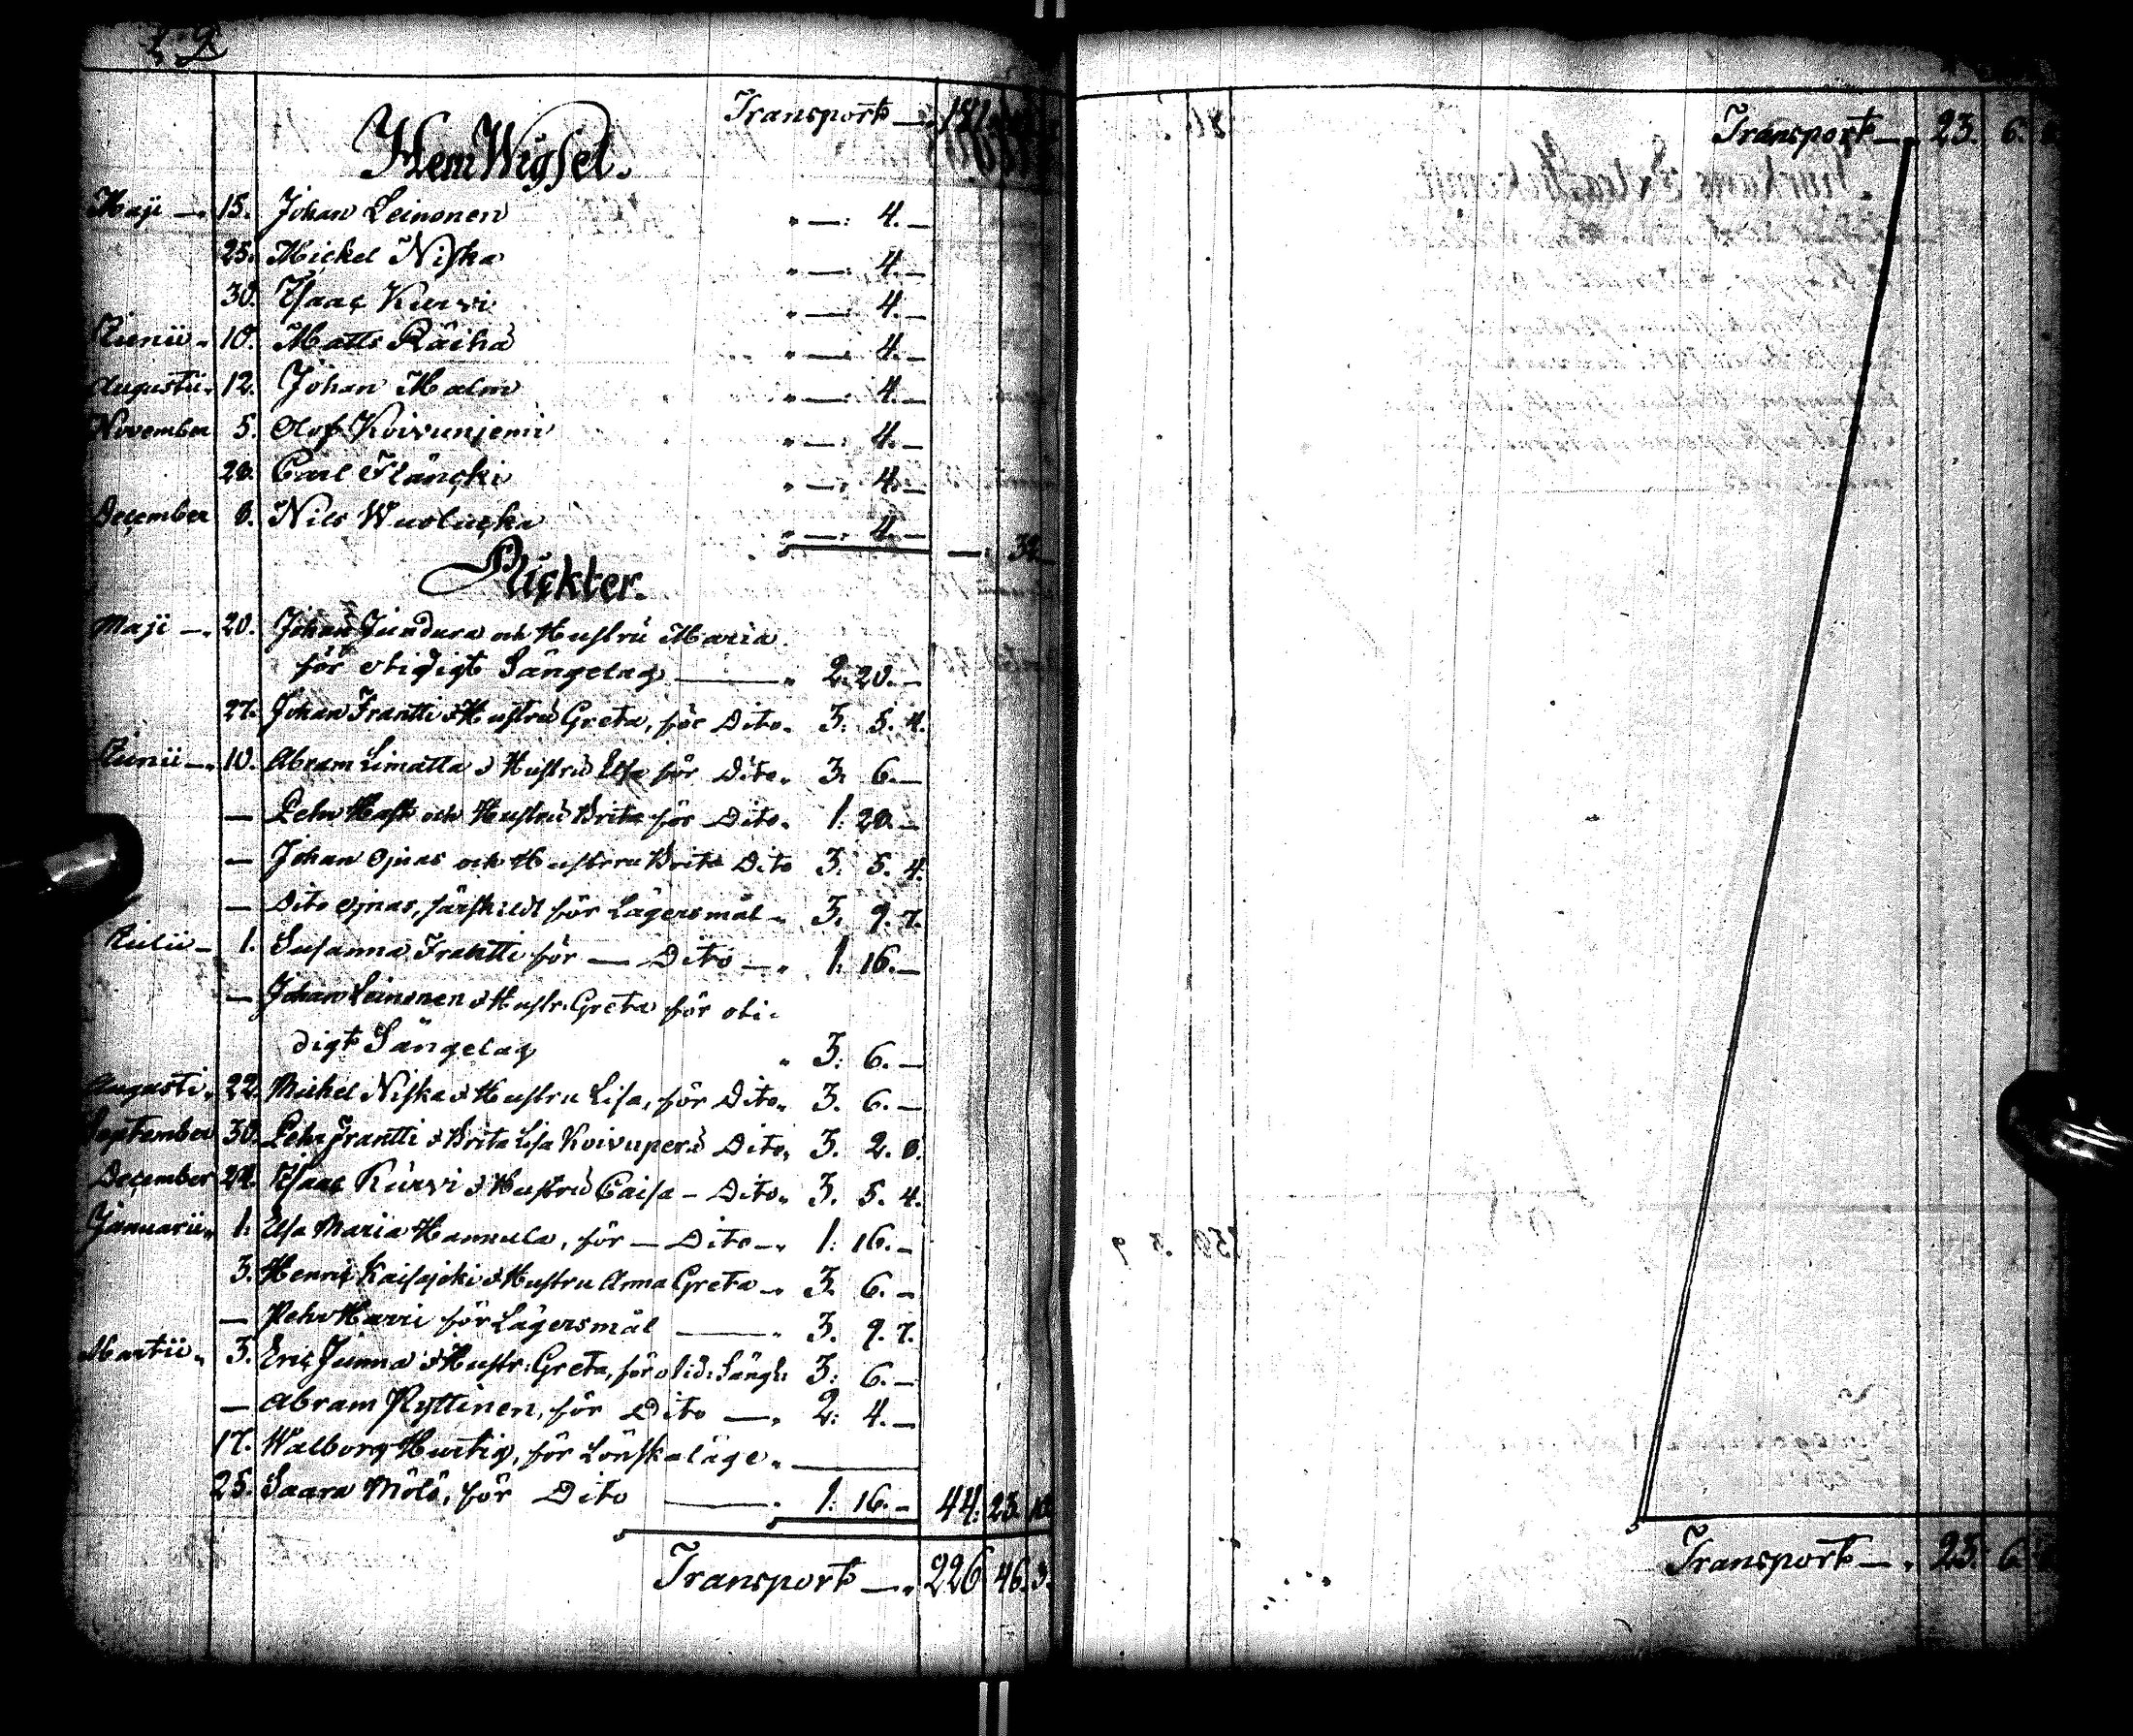 Transport — 181.
HemWigsel.
Maji — 15. Johan Leinonen " — : 4. —
25. Mickel Niska " — : 4. —
30. Isaac Kurvi " — : 4. —
Junii — 10. Matts Räihä " — : 4. —
Augustii — 12. Johan Malm " — : 4. —
November 5. Olof Koivunjemi " — : 4. —
28. Carl Flänski " — : 4. —
December 8. Nils Wuoluska " — : 4. — — : 32. —
Plickter.
Maji — 20. Johan Jundura och Hustru Maria
för otidigt Sängelag — " 2: 20. —
27. Johan Frantti & Hustru Greta, för Dito " 3: 5. 4.
Junii — 10. Abram Limatta & Hustru Elsa för Dito " 3: 6. —
— Pehr Hast och Hustru Brita för Dito " 1: 20. —
— Johan Ojnas och Hustru Brita Dito 3: 5. 4.
— Dito Ojnas, särskildt för Lägersmål " 3: 9. 7.
Julii — 1. Susanna Frantti för — Dito — " 1: 16. —
— Johan Leinonen & Hustr: Greta för oti-
digt Sängelag " 3: 6. —
Augusti 22. Michel Niska & Hustru Lisa, för Dito " 3. 6. —
September 30. Pehr Frantti & Brita Lisa Koivuperä Dito " 3. 2. 8.
December 24. Isaac Kurvi & Hustru Caisa — Dito " 3. 5. 4.
Januarii 1. Elsa Maria Hannula, för — Dito — " 1: 16. —
3. Henric Kaisajoki & Hustru Anna Greta — " 3. 6. —
— Pehr Harri för Lägersmål — " 3. 9. 7.
Martii 3. Eric Junna & Hustr: Greta, för otid: Sängl: 3: 6. —
— Abram Ryttinen, för Dito — " 2: 4. —
17. Walborg Hurtig, för Lönskaläge " —
25. Saara Mölö, för Dito — " 1: 16. — 44: 23. 10.
Transport — " 226. 46. 3.
Transport — " 23. 6.
Transport — " 23. 6.